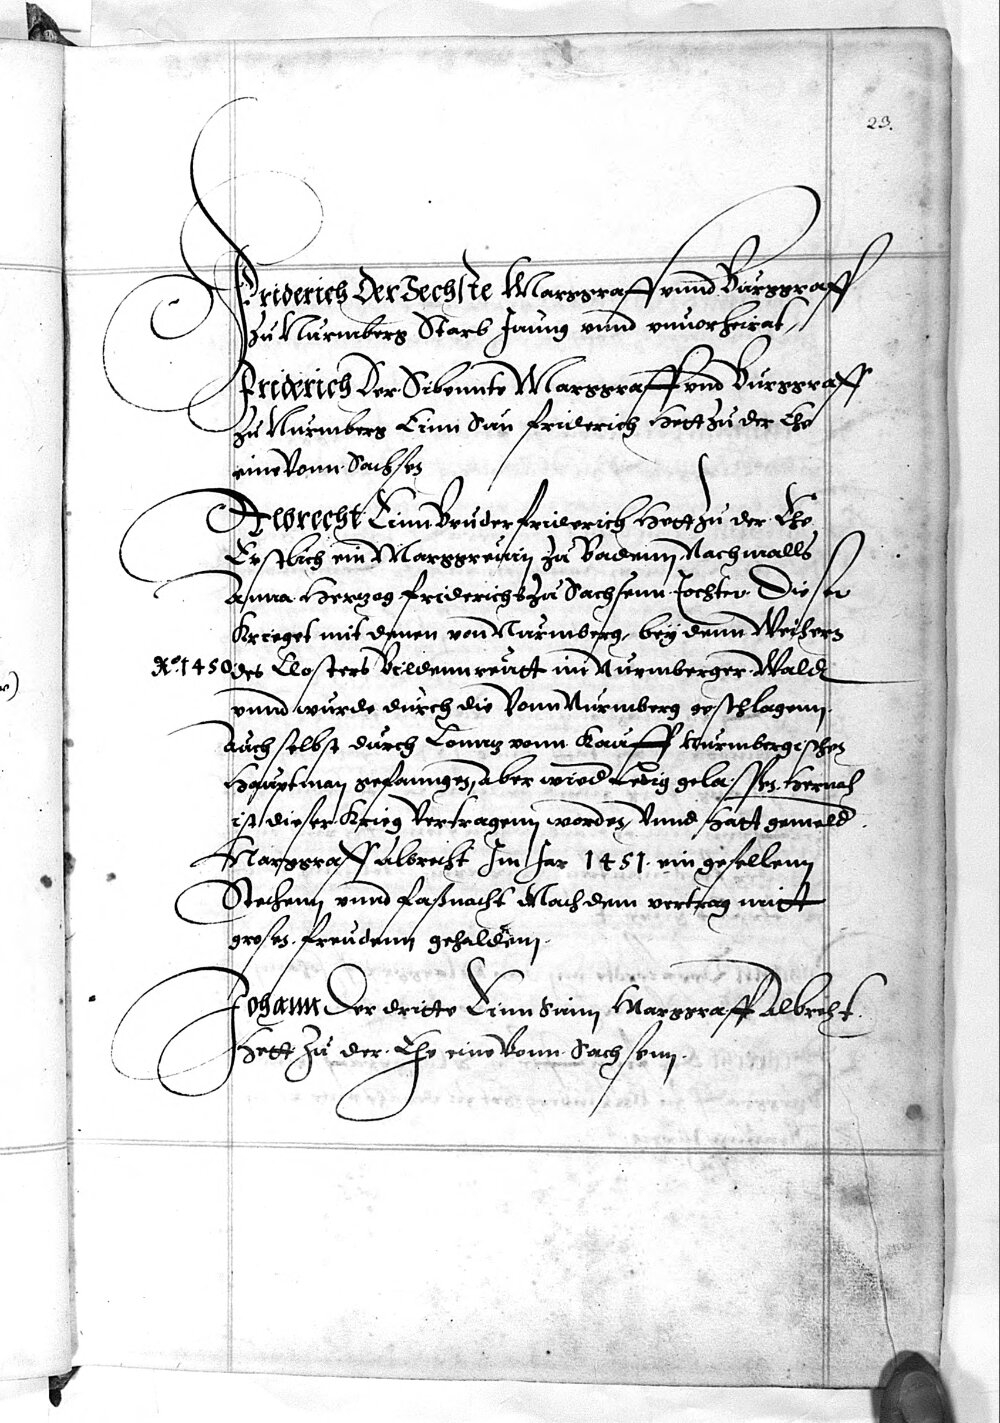 23.
Friderich Der Sechste Marggraff vnnd Burggraff
zu Nurmberg Starb Jaung vnnd vnuorheirat,
Friderich Der Sibennte Marggraff vnd Burggraff
zu Nurmberg Einn Sun friderich Hett zu der Ehe
eine Vonn Sachsen
Albrecht Einn Bruder friderich Hett zu der Ehe
Erstlich ein Marggreuin zu Badenn Nachmalls
Anna Hertzog friderichs zu Sachsenn Tochter. Dieser
Krieget mit denen von Nurmberg, bey denn Weihern
Ao. 1450 des Closters Pildennreutt im Nurmberger Wald
vnnd wurde durch die Vonn Nurmberg geschlagenn.
Auch selbst durch Connz vonn Kauff Nurmbergischen
Hauptman gefanngen, aber wird ledig gelassen. Hernach
ist dieser Krieg Vertragenn worden, Vnnd Hatt gemeld
Marggraff Albrecht Im Jar 1451. ein gesellenn
Stechenn vnnd faßnacht Nach dem vertrag mitt
grosen. freudenn gehaldenn.
Johann Der dritte Einn Sunn Marggraff Albrecht.
Hett zu der. Ehe eine Vonn Sachsenn.